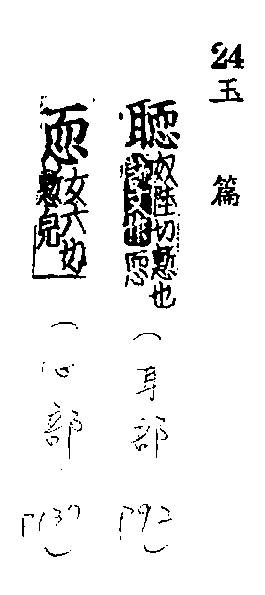 24 玉篇
奴陸切慙也
說文作恧
(耳部 P92)
恧女六切
慙皃
(心部 P137)